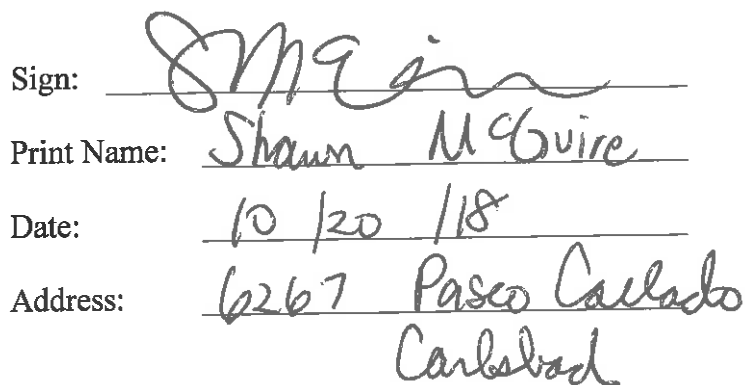 Sign: SMcGuire
Print Name: Shawn McGuire
Date: 10/20/18
Address: 6267 Paseo Callado
Carlsbad